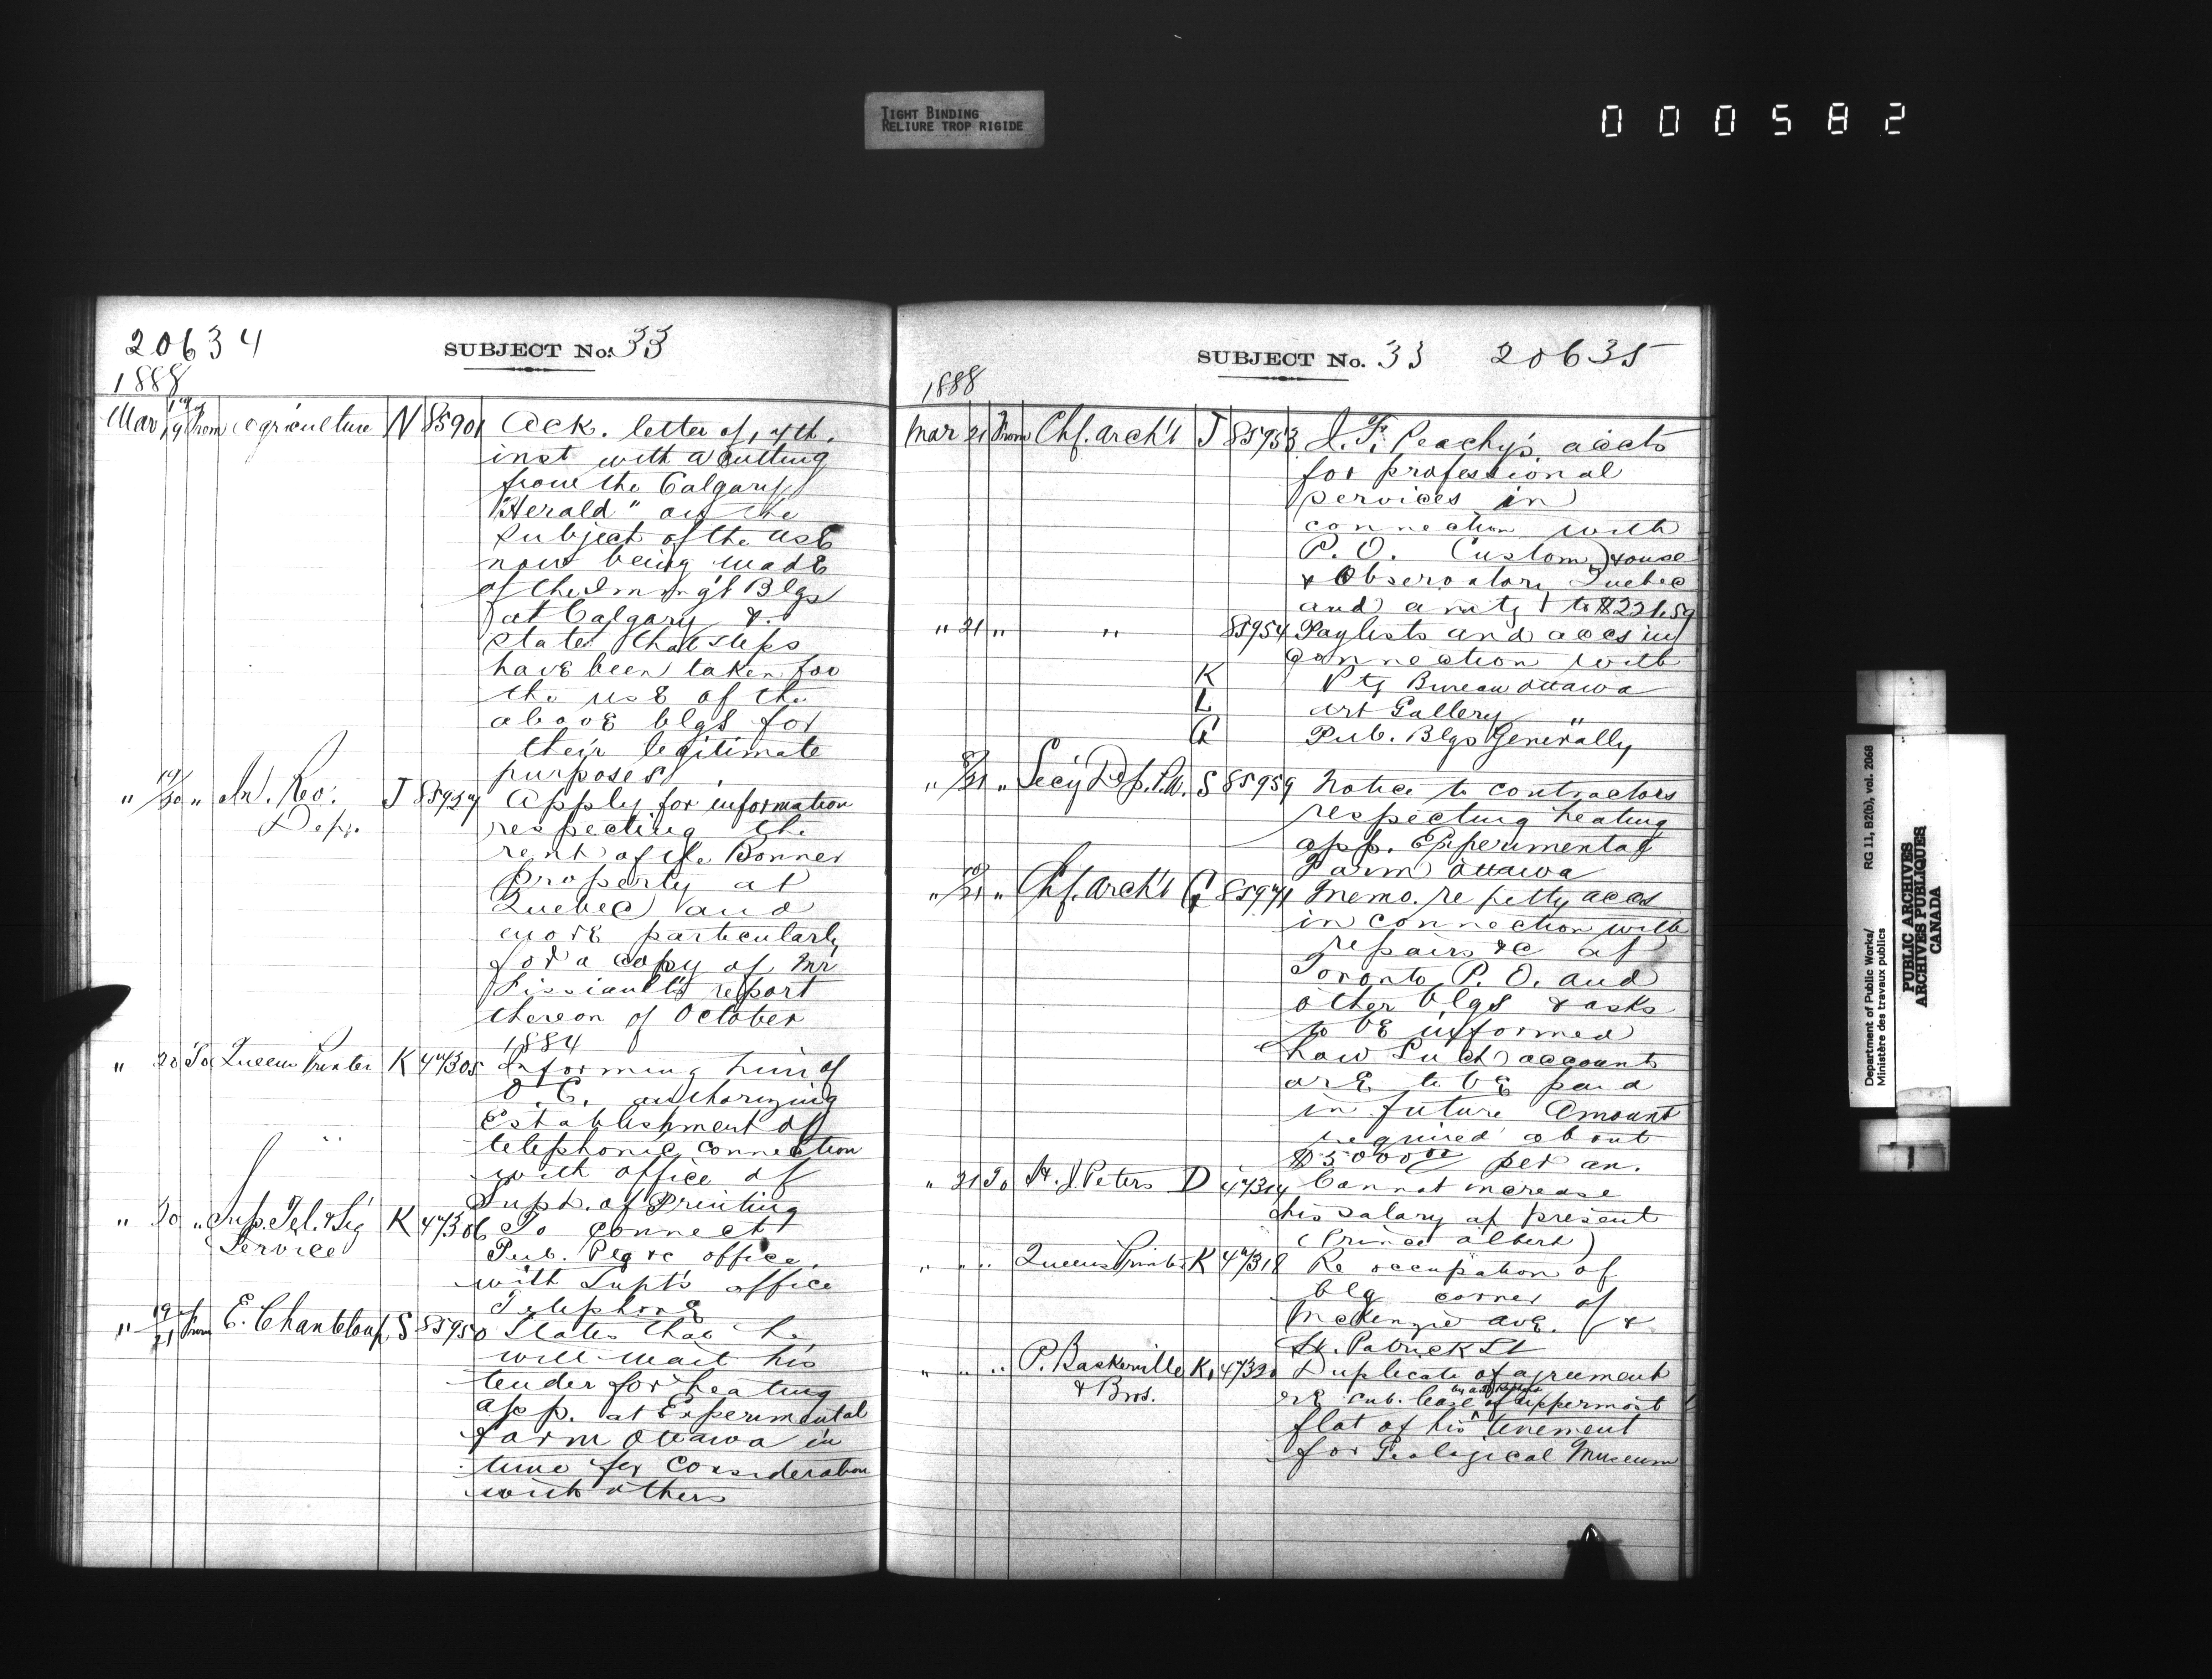 TIGHT BINDING
RELIURE TROP RIGIDE
000582
20634
SUBJECT No. 33
1888
Mar 19 From Agriculture N 85901 Ack. letter of 14th.
inst with a cutting
from the Calgary
"Herald" on the
subject of the use
now being made
of the Immig't Blgs
at Calgary &
states that steps
have been taken for
the use of the
above blgs for
their legitimate
purposes
" 19/20 " In. Rev. J 85927 Apply for information
Dep.
respecting the
rent of the Bonner
property at
Quebec and
more particularly
for a copy of Mr
report
thereon of October
1884
" 20 To Queens Printer K 47305 Informing him of
O. C. authorizing
Establishment of
telephonic connection
with office of
Supt. of Printing
" 20 " Sup. Tel. & Sig K 47306 To connect
Service
Pub. Ptg &c office
with Supt's office
Telephone
" 19/21 From E. Chanteloup S 85950 States that he
will mail his
tender for heating
app. at Experimental
farm Ottawa in
time for consideration
with others
SUBJECT No. 33 20635
1888
Mar 21 From Chf. Arch't J 85953 J. F. Peachy's accts
for professional
services in
connection with
P. O. Custom House
& Observatory Quebec
and amtg to $221.59
" 21 " " 85954 Paylists and accs in
connection with
K Ptg Bureau Ottawa
L Art Gallery "
G Pub. Blgs Generally
" /21 " Sec'y Dep. P.W. S 85959 Notice to contractors
respecting heating
app. Experimental
Farm Ottawa
" /21 " Chf. Arch't G 85971 Memo. re petty accs
in connection with
repairs &c at
Toronto P. O. and
other blgs & asks
to be informed
how such accounts
are to be paid
in future Amount
required about
$5000.00 per an.
" 21 To H. J. Peters D 47314 Cannot increase
his salary at present
(Prince Albert)
" " " Queens Printer K 47318 Re occupation of
blg corner of
McKenzie ave. &
St. Patrick St
" " " P. Baskerville K 47320 Duplicate of agreement
& Bros.
re sub. lease of uppermost
flat of his tenement
for Geological Museum
Department of Public Works/ RG 11, B2(b), vol. 2068
Ministère des travaux publics
PUBLIC ARCHIVES
ARCHIVES PUBLIQUES
CANADA